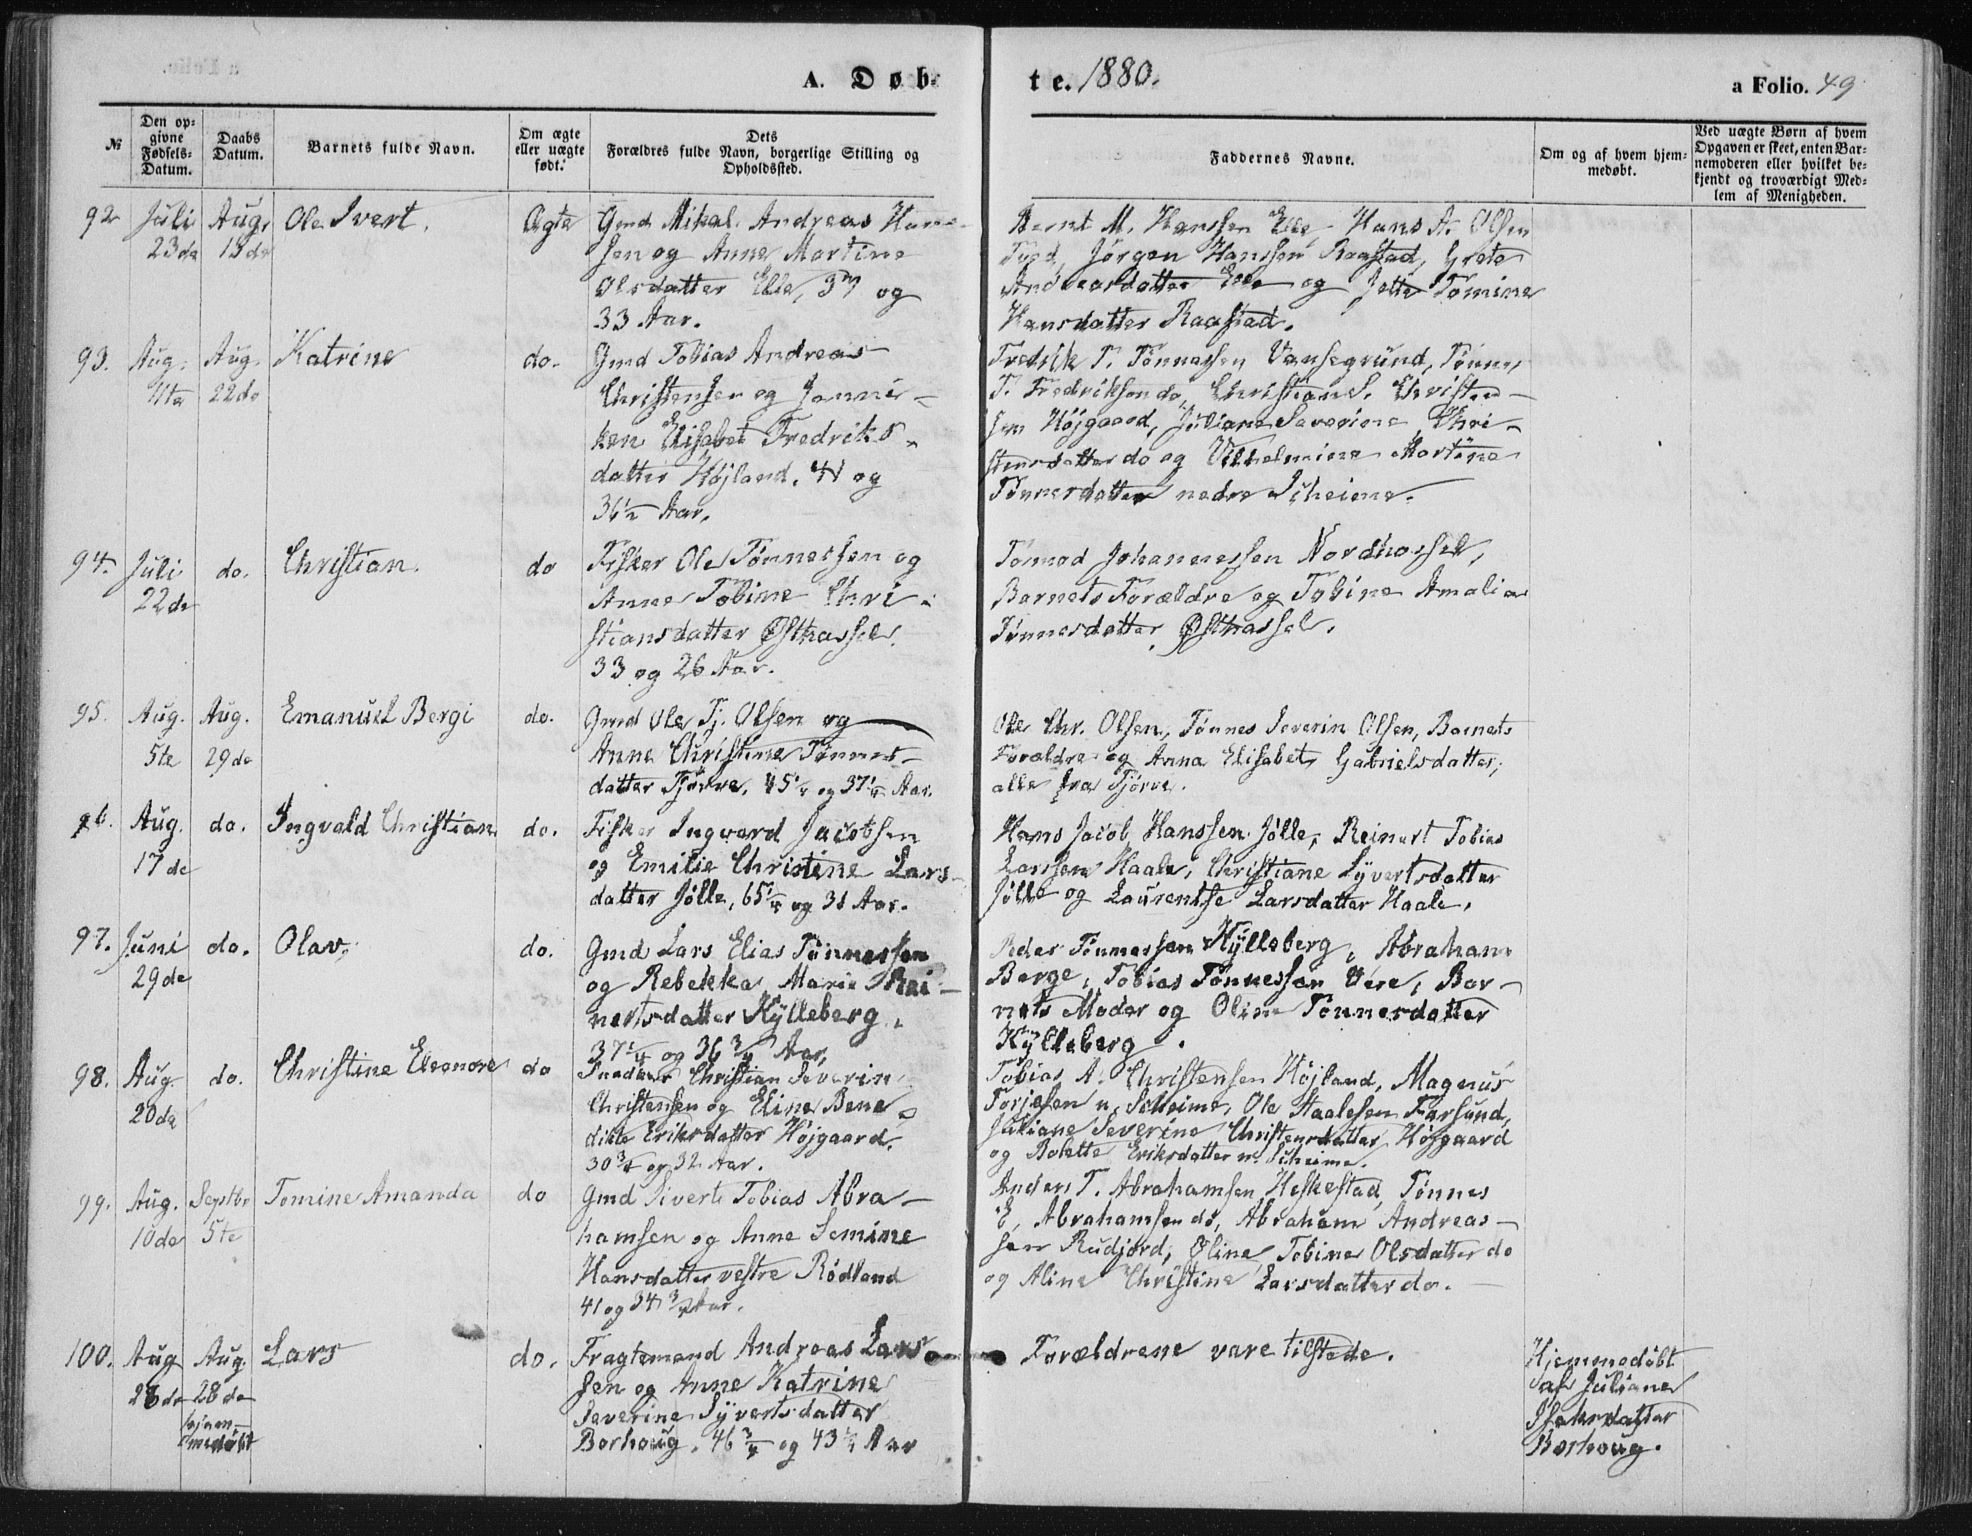 A. Døb-
te. 1880.
a Folio. 49
№
Den op-
givne
Fødsels-
Datum.
Daabs
Datum.
Barnets fulde Navn.
Om ægte
eller uægte
født.
Dets
Forældres fulde Navn, borgerlige Stilling og
Opholdssted.
Faddernes Navne.
Om og af hvem hjem-
medøbt.
Ved uægte Børn af hvem
Opgaven er skeet, enten Bar-
nemoderen eller hvilket be-
kjendt og troværdigt Med-
lem af Menigheden.
92 Juli
23de
Aug.
15de
Ole Ivert.
Ægte
Gmd Mikal Andreas Han-
sen og Anne Martine
Olsdatter Elle, 37 og
33 Aar.
Bernt M. Hanssen Elle Hans A. Olsen
Jørgen Hanssen Raastad, Grete
Andreasdatter Elle og Jette Tomine
Hansdatter Raastad.
93. Aug.
11te
Aug.
22de
Katrine
do.
Gmd Tobias Andreas
Christensen og Janni-
ken Elisabet Fredriks-
datter Højland. 41 og
36½ Aar.
Fredrik T. Tønnessen Vansegrund, Tønnes
T. Fredriksen do, Christian S. Christen-
sen Højgaard, Juliane Severine Chri-
stensdatter do og Vilhelmine Martine
Tønnesdatter nedre Scheime.
94. Juli
22de
do.
Christian.
do
Fisker Ole Tønnessen og
Anne Tobine Chri-
stiansdatter Østhassel.
33 og 26 Aar.
Tønnod Johannessen Nordhassel,
Barnets Forældre og Tobine Amalia
Tønnesdatter Østhassel.
95. Aug.
5te
Aug.
29de
Emanuel Bergi
do.
Gmd Ole Tj. Olsen og
Anne Christine Tønnes-
datter Tjørve. 45¼ og 37¼ Aar.
Ole Chr. Olsen, Tønnes Severin Olsen, Barnets
Forældre og Anna Elisabet Gabrielsdatter,
alle fra Tjørve.
96. Aug.
17de
do.
Ingvald Christian
do.
Fisker Ingvard Jacobsen
og Emilie Christine Lars-
datter Jølle, 65¼ og 31 Aar.
Hans Jacob Hanssen Jølle, Reinert Tobias
Larssen Haale, Christiane Syvertsdatter
Jølle og Laurentse Larsdatter Haale.
97. Juni
29de
do.
Olav,
do.
Gmd Lars Elias Tønnessen
og Rebekka Marie Rei-
nertsdatter Kylleberg,
37¼ og 36¾ Aar,
Peder Tønnessen Kylleberg, Abraham
Berge, Tobias Tønnessen Vere, Bar-
nets Moder og Oline Tønnesdatter
Kylleberg.
98. Aug.
20de
do.
Christine Eleonore
do
Snedker Christian Severin
Christensen og Eline Bene-
dikte Eriksdatter Højgaard.
30¾ og 32 Aar.
Tobias A. Christensen Højland, Magnus
Torjesen n. Scheime, Ole Staalesen Farsund,
Juliane Severine Christensdatter Højgaard
og Bolette Eriksdatter n. Scheime.
99. Aug.
10de
Septbr
5te
Tomine Amanda
do
Gmd Sivert Tobias Abra-
hamsen og Anne Semine
Hansdatter vestre Rødland
41 og 34¾ Aar.
Anders T. Abrahamsen Heskestad, Tønnes
E. Abrahamsen do, Abraham Andreas-
sen Rudjord, Oline Tobine Olsdatter do
og Aline Christine Larsdatter do.
100. Aug
28de
Aug.
28de
hjem-
medøbt
Lars
do.
Fragtemand Andreas Lars-
sen og Anne Katrine
Severine Syvertsdatter
Borhoug. 46¾ og 43½ Aar
Forældrene vare tilstede.
Hjemmedøbt
af Juliane
Isaksdatter
Borhoug.